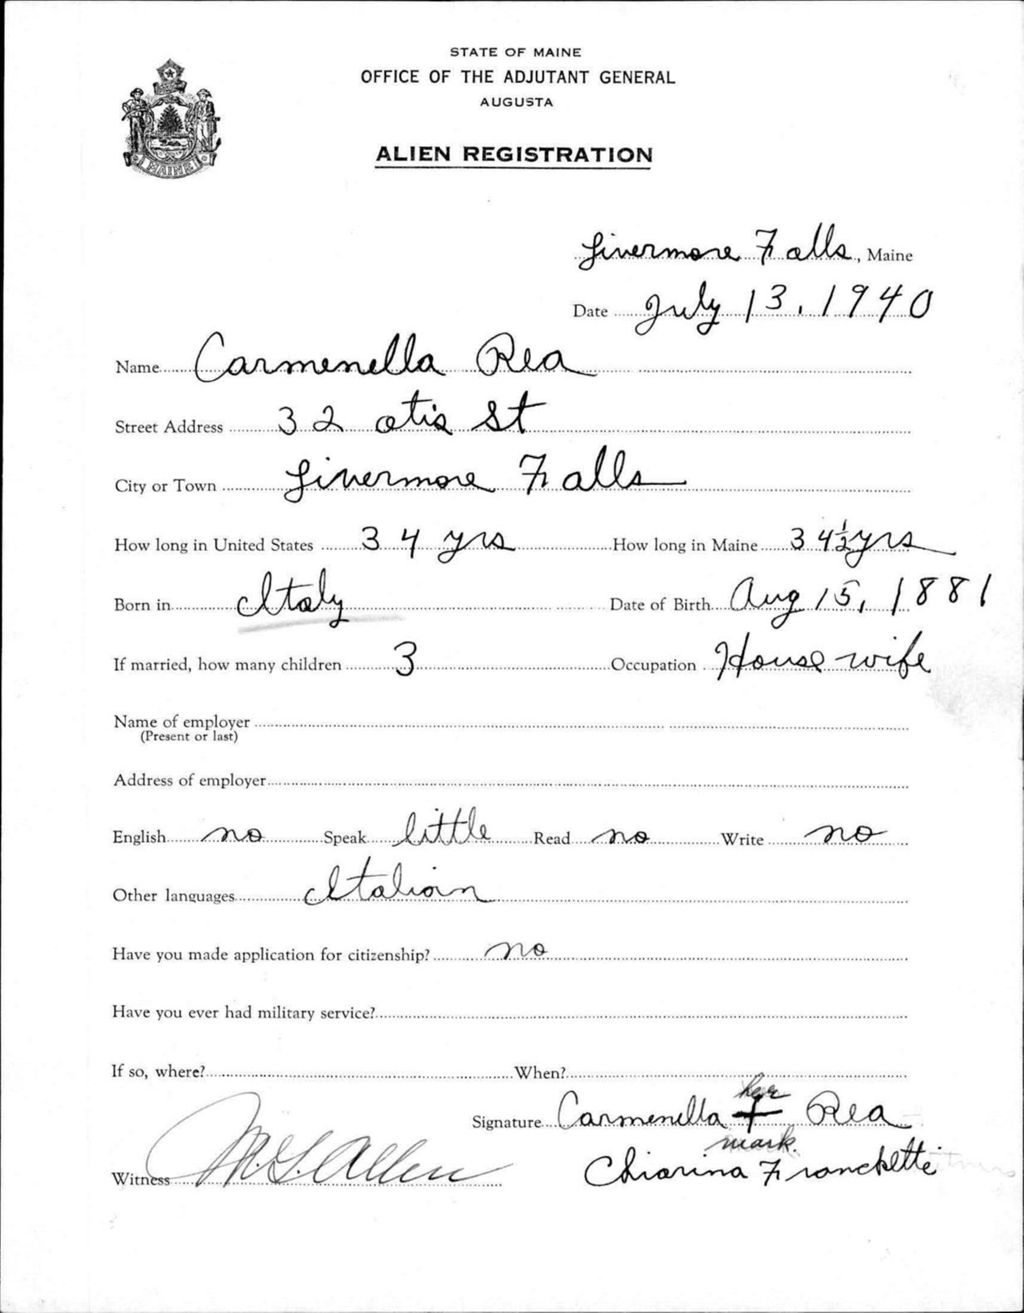 STATE OF MAINE
OFFICE OF THE ADJUTANT GENERAL
AUGUSTA
ALIEN REGISTRATION
MAINE
Livermore Falls, Maine
Date July 13, 1940
Name Carmenella Rea
Street Address 32 Otis St
City or Town Livermore Falls
How long in United States 34 yrs How long in Maine 34½ yrs
Born in Italy Date of Birth Aug 15, 1881
If married, how many children 3 Occupation House wife
Name of employer
(Present or last)
Address of employer
English no Speak little Read no Write no
Other languages Italian
Have you made application for citizenship? no
Have you ever had military service?
If so, where? When?
her
Signature Carmenella + Rea
mark.
Witness M. L. Allen Chiarina Franchette